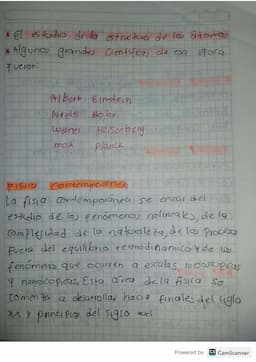 * El estudio de la estructura de los átomos
* Algunos grandes científicos de esa época
Fueron:
Albert Einstein
Niels Bohr
Werner Heisenberg
max planck
Física Contemporánea
La física contemporánea se encarga del
estudio de los fenómenos no lineales, de la
complejidad de la naturaleza, de los procesos
Fuera del equilibrio termodinámico y de los
fenómenos que ocurren a escalas mesoscópicas
y nanoscópicas, Esta área de la física se
comenzó a desarrollar hacia finales del siglo
xx y principios del siglo xxi
Powered by CS CamScanner